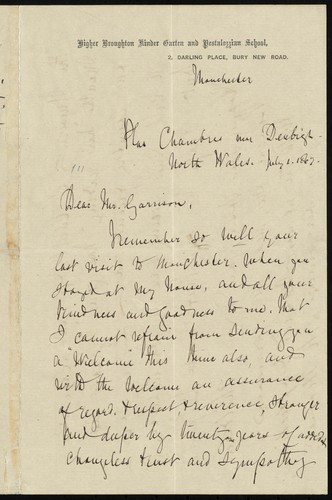 Higher Broughton Kinder Garten and Pestalozzian School,
2, DARLING PLACE, BURY NEW ROAD.
Manchester
Plas Chambres near Denbigh
North Wales. July 1. 1867.
Dear Mr. Garrison,
I remember so well your
last visit to Manchester. When you
stayed at my House, and all your
kindness and goodness to me. That
I cannot refrain from sending you
a Welcome this time also, and
with the Welcome an assurance
of regard, & respect, & reverence, stronger
and deeper by twenty years of added
changeless trust and sympathy